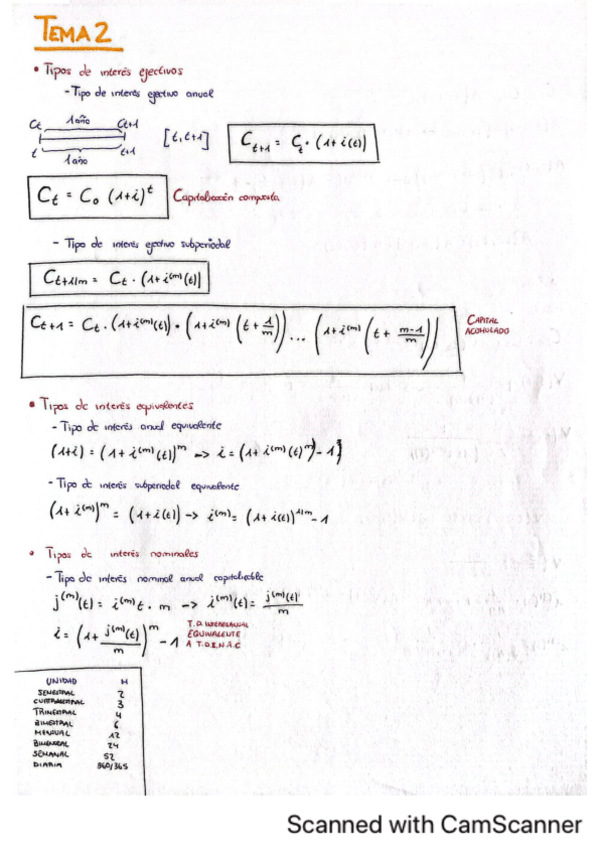 TEMA 2
• Tipos de interés efectivos
- Tipo de interés efectivo anual
Ct 1 año Ct+1
t 1 año t+1
[t, t+1]
C_{t+1} = C_t · (1+i(t))
C_t = C_0 (1+i)^t Capitalización compuesta
- Tipo de interés efectivo subperiodal
C_{t+1/m} = C_t · (1+i^{(m)}(t))
C_{t+1} = C_t · (1+i^{(m)}(t)) · (1+i^{(m)}(t+1/m)) ... (1+i^{(m)}(t+ (m-1)/m))
CAPITAL
ACOMULADO
• Tipos de interés equivalentes
- Tipo de interés anual equivalente
(1+i) = (1+i^{(m)}(t))^m -> i = (1+i^{(m)}(t)^m) - 1]
- Tipo de interés subperiodal equivalente
(1+i^{(m)})^m = (1+i(t)) -> i^{(m)} = (1+i(t))^{1/m} - 1
• Tipos de interés nominales
- Tipo de interés nominal anual capitalizable
j^{(m)}(t) = i^{(m)}t · m -> i^{(m)}(t) = j^{(m)}(t)/m
i = (1 + j^{(m)}(t)/m)^m - 1
EQUIVALENTE
UNIDAD M
SEMESTRAL 2
CUATRIMESTRAL 3
TRIMESTRAL 4
BIMESTRAL 6
MENSUAL 12
BIMENSUAL 24
SEMANAL 52
DIARIA 360/365
Scanned with CamScanner